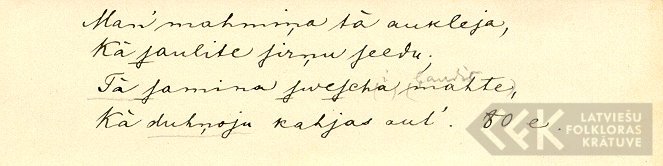 Man' mahmiņa tā aukleja,
Kā saulite sirņu seedu;
Tā samina swescha mahte,
Kā duhņoju kahjas aut'. 80 e.
LATVIEŠU
FOLKLORAS
KRĀTUVE